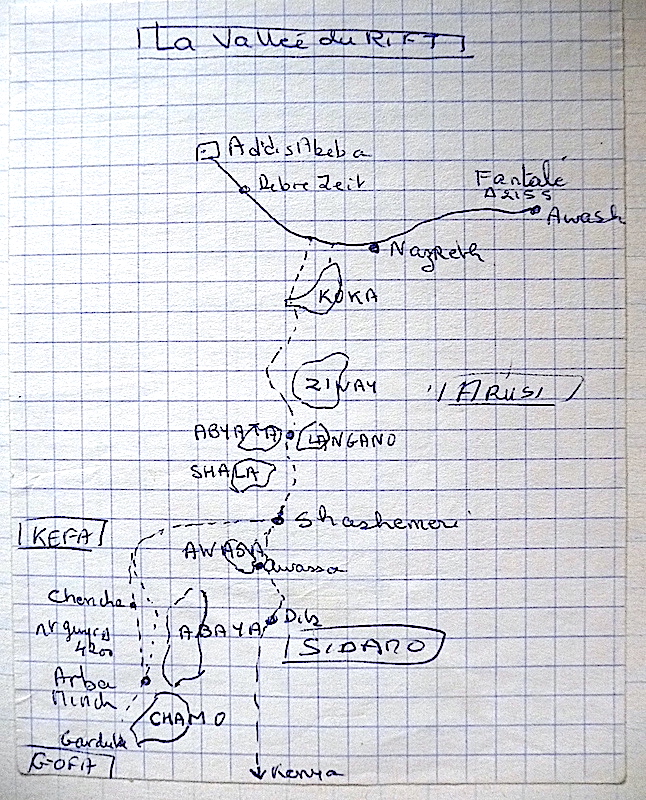 La Vallée du RIFT
Addis Abeba
Debre Zeit
Fantalé
Awash
Nazreth
KOKA
ZIWAY
ARUSI
ABYATA
LANGANO
SHALA
Shashemeni
KEFA
AWASA
Awassa
Chencha
ABAYA
Dila
4200
SIDAMO
Arba
Minch
CHAMO
Gardula
GOFA
Kenya